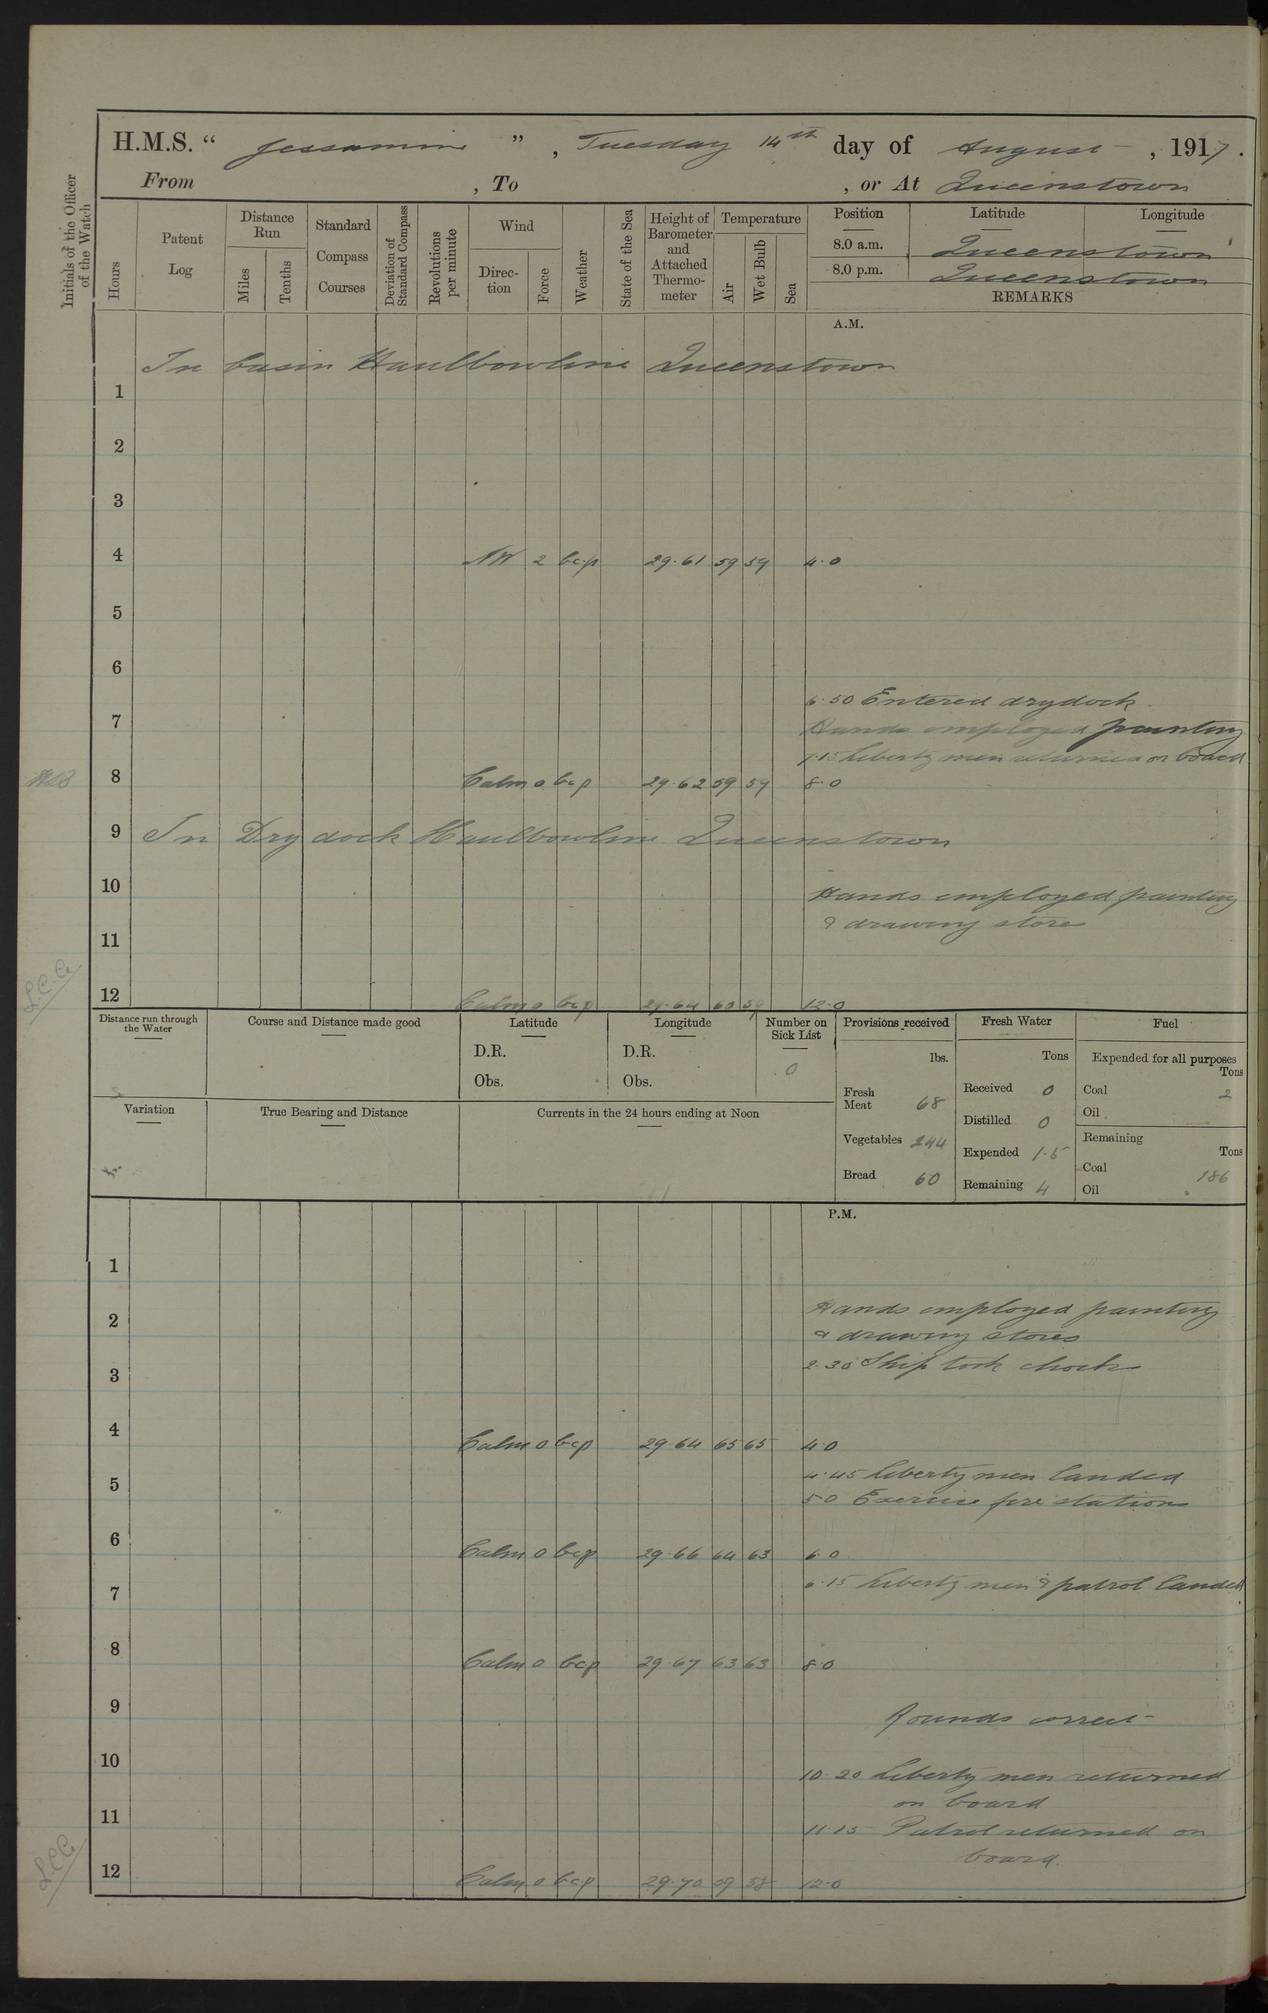 H.M.S. " Jessamine " , Tuesday 14th day of August , 1917.
From , To , or At Queenstown
Initials of the Officer of the Watch
Hours
Patent Log
Distance Run
Miles
Tenths
Standard Compass Courses
Deviation of Standard Compass
Revolutions per minute
Wind
Direction
Force
Weather
State of the Sea
Height of Barometer and Attached Thermometer
Temperature
Air
Wet Bulb
Sea
Position Latitude Longitude
8.0 a.m. Queenstown
8.0 p.m. Queenstown
REMARKS
A.M.
In basin Haulbowline Queenstown
1
2
3
4 NW 2 bcp 29.61 59 59 4.0
5
6
6.50 Entered drydock
7 Hands employed painting
7.15 Liberty men returned on board
8 Calm 0 bcp 29.62 59 59 8.0
9 In Dry dock Haulbowline Queenstown
10 Hands employed painting
& drawing stores
11
LCC
12 Calm 0 bcp 29.64 60 59 12.0
Distance run through the Water
Course and Distance made good
Latitude
D.R.
Obs.
Longitude
D.R.
Obs.
Number on Sick List
0
Provisions received
lbs.
Fresh Meat 68
Vegetables 244
Bread 60
Fresh Water
Tons
Received 0
Distilled 0
Expended 1.5
Remaining 4
Fuel
Expended for all purposes
Tons
Coal 2
Oil
Remaining
Tons
Coal 186
Oil
Variation
True Bearing and Distance
Currents in the 24 hours ending at Noon
P.M.
1
Hands employed painting
2 & drawing stores
2.30 Ship took chocks
3
4 Calm 0 bcp 29.64 65 65 4.0
4.45 Liberty men landed
5 5.0 Exercise fire stations
6 Calm 0 bcp 29.66 64 63 6.0
6.15 Liberty men & patrol landed
7
8 Calm 0 bcp 29.67 63 63 8.0
9 Rounds correct
10 10.20 Liberty men returned
on board
11 11.15 Patrol returned on
board.
LCC
12 Calm 0 bcp 29.70 59 58 12.0